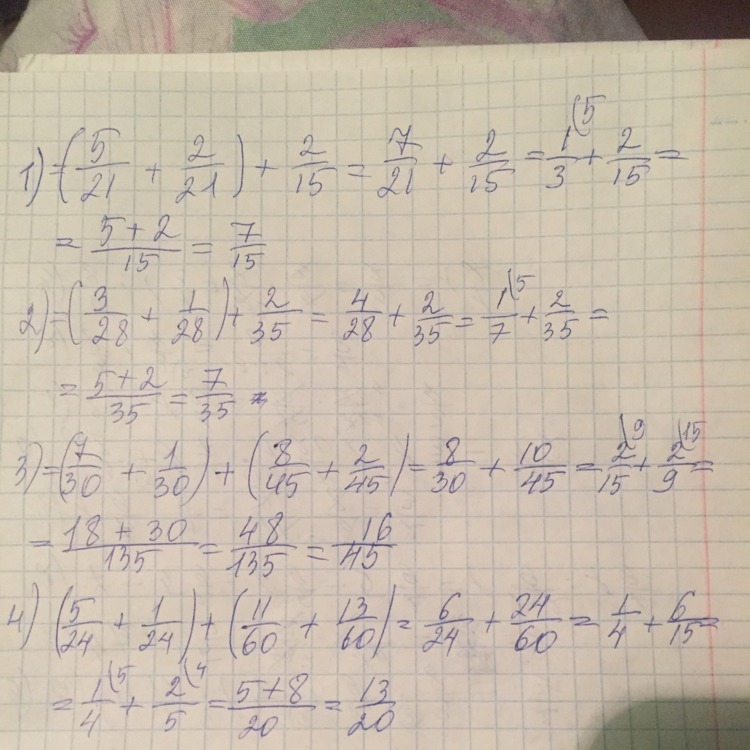 1) =(5/21 + 2/21) + 2/15 = 7/21 + 2/15 = 1/3 (5 + 2/15 =
= 5+2/15 = 7/15
2) =(3/28 + 1/28) + 2/35 = 4/28 + 2/35 = 1/7 (5 + 2/35 =
= 5+2/35 = 7/35
3) =(7/30 + 1/30) + (8/45 + 2/45) = 8/30 + 10/45 = 2/15 \9 + 2/9 (15 =
= 18 + 30/135 = 48/135 = 16/45
4) (5/24 + 1/24) + (11/60 + 13/60) = 6/24 + 24/60 = 1/4 + 6/15 =
= 1/4 (5 + 2/5 (4 = 5+8/20 = 13/20